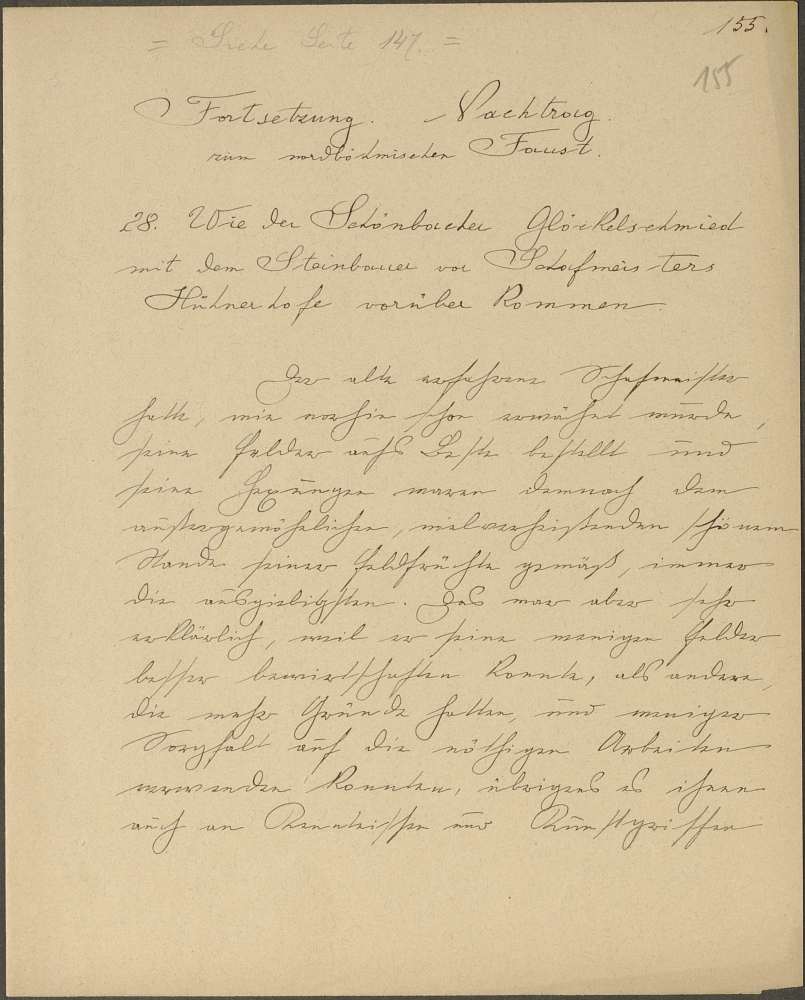 155.
= Siehe Seite 147. =
155
Fortsetzung. Nachtrag
zum nordböhmischen Faust.
28. Wie der Schönbacher Glöckelschmied
mit dem Steinbauer vor Schafmeisters
Hühnerhofe vorüber kommen.
Der alte erfahrene Schafmeister
hatte, wie vorhin schon erwähnt wurde,
seine Felder aufs Beste bestellt und
seine Fexungen waren demnach dem
außergewöhnlichen, vielverheißenden schönem
Stande seiner Feldfrüchte gemäß, immer
die ausgiebigsten. Das war aber sehr
erklärlich, weil er seine wenigen Felder
besser bewirtschaften konnte, als andere,
die mehr Gründe hatten, und weniger
Sorgfalt auf die nöthigen Arbeiten
verwenden konnten, übrigens es ihnen
auch an Kenntnissen und Kunstgriffen